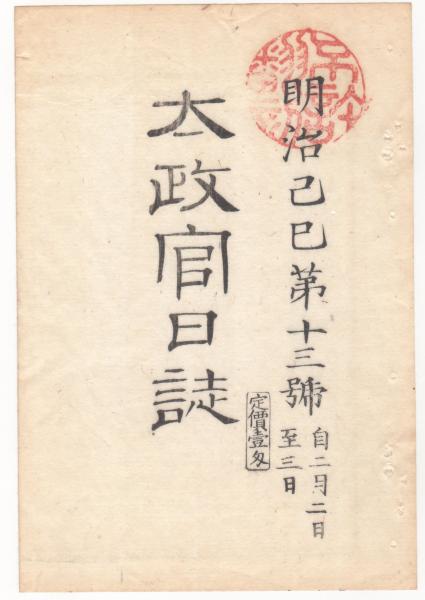 明治己巳第十三號
自二月二日
至三日
定價壹匁
太政官日誌